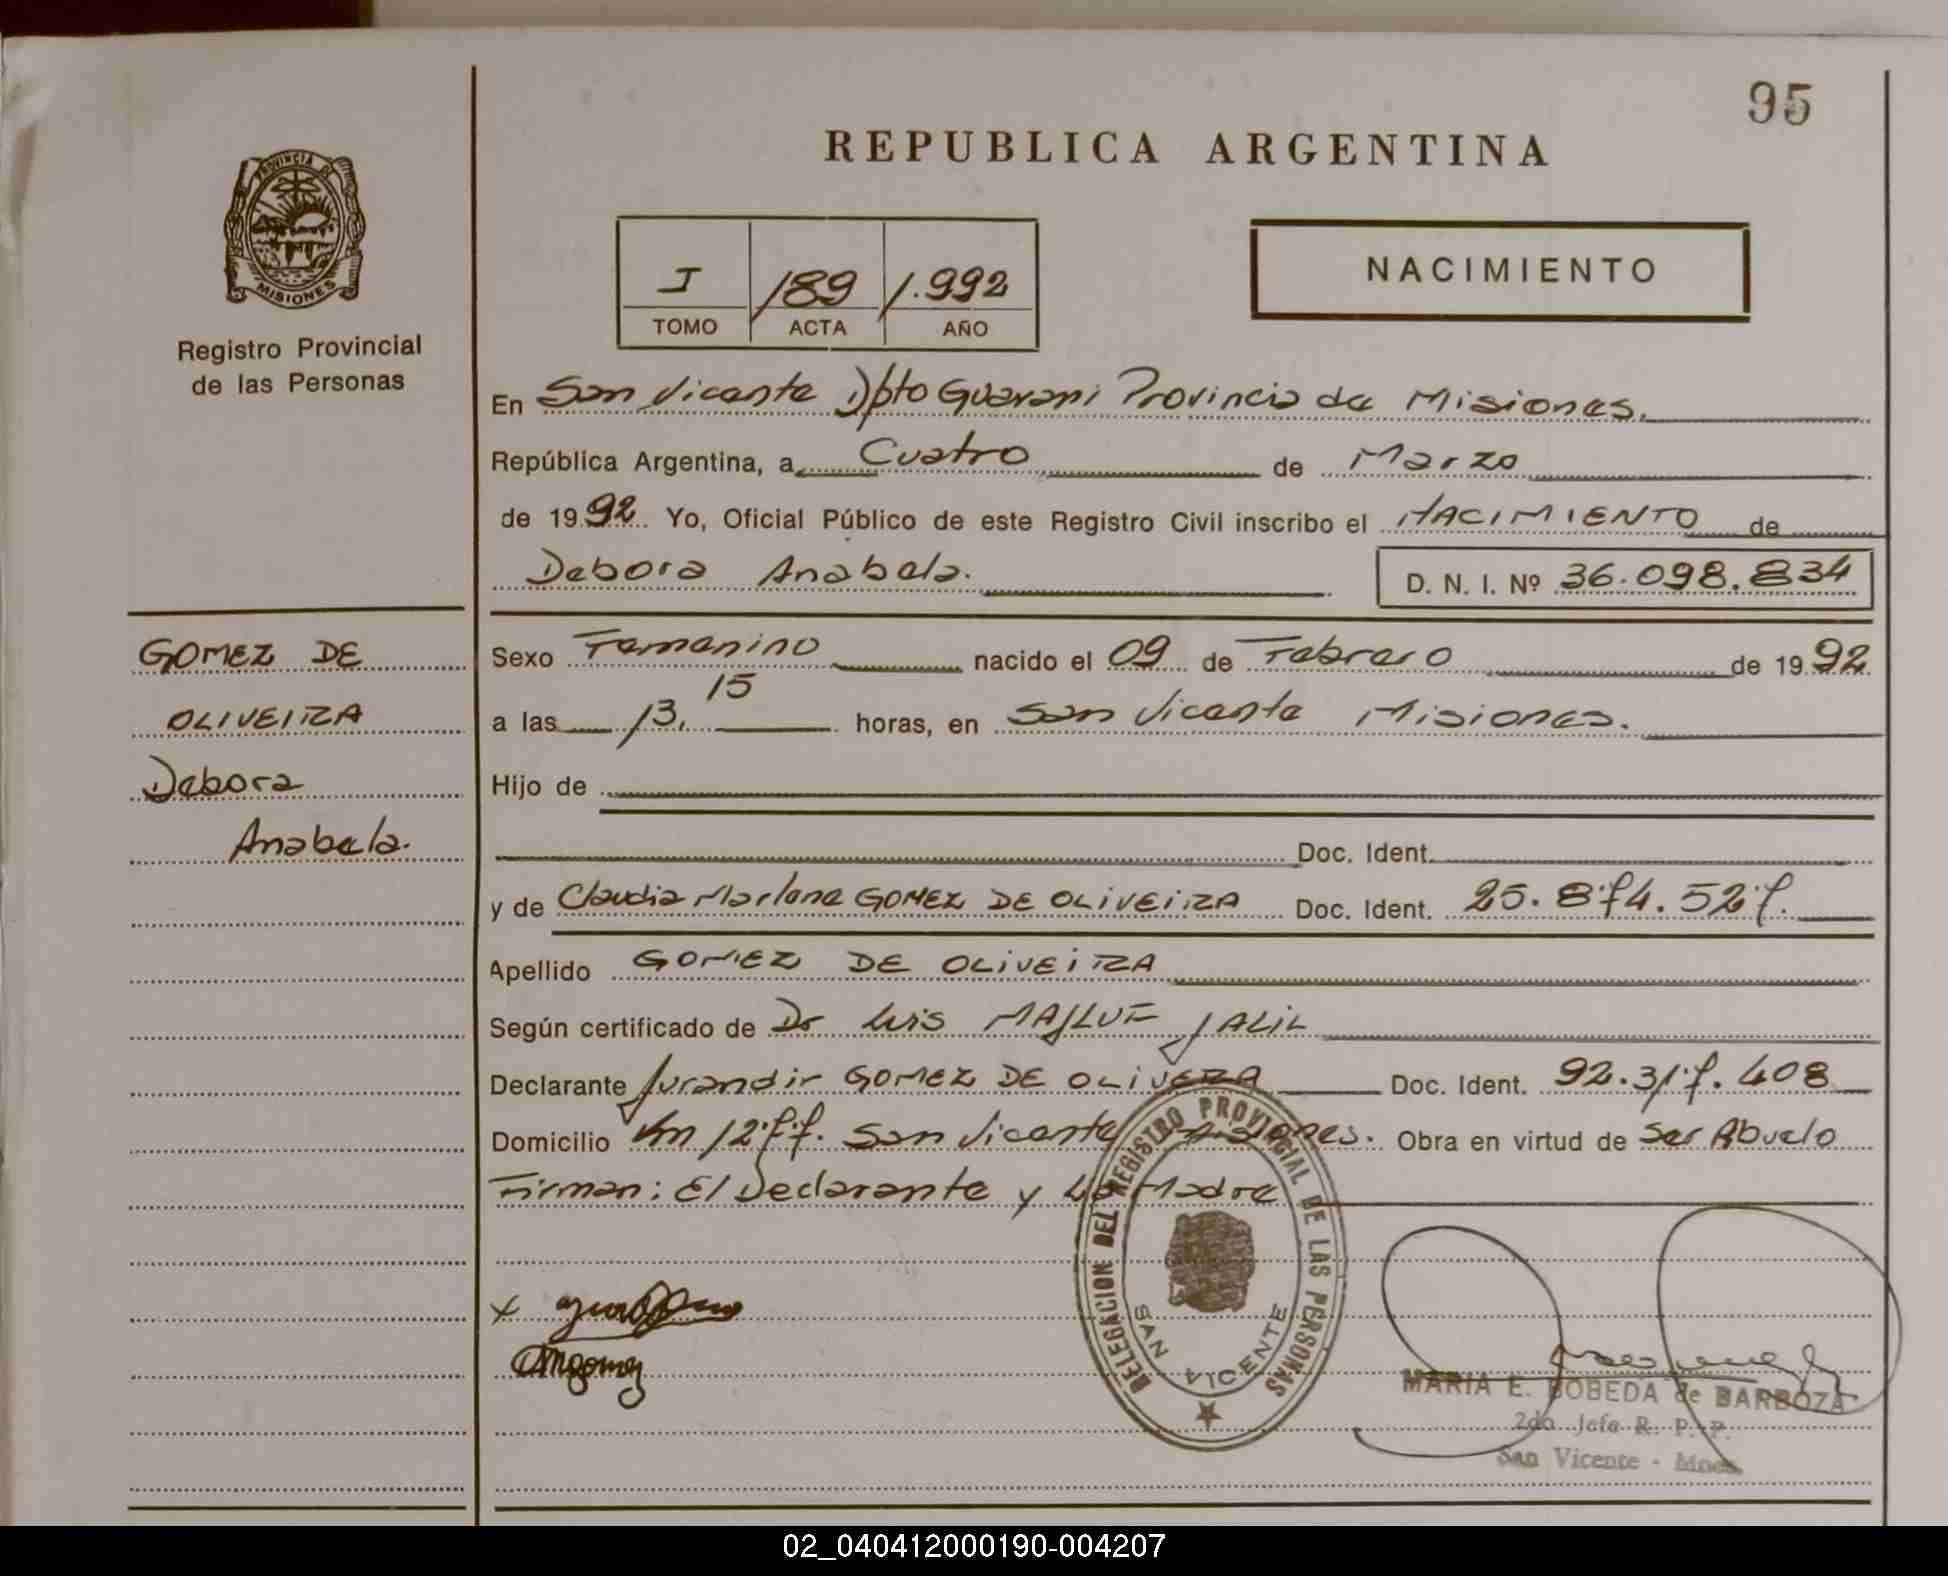 95
REPUBLICA ARGENTINA
PROVINCIA DE
MISIONES
Registro Provincial
de las Personas
I 189 1.992
TOMO ACTA AÑO
NACIMIENTO
En San Vicente Dpto Guarani Provincia de Misiones.
República Argentina, a Cuatro de Marzo
de 1992 Yo, Oficial Público de este Registro Civil inscribo el NACIMIENTO de
Debora Anabela. D. N. I. Nº 36.098.834
GOMEZ DE
OLIVEIRA
Debora
Anabela.
Sexo Femenino nacido el 09 de Febrero de 1992
a las 13,15 horas, en San Vicente Misiones.
Hijo de
Doc. Ident.
y de Claudia Marlene GOMEZ DE OLIVEIRA Doc. Ident. 25.874.527.
Apellido GOMEZ DE OLIVEIRA
Según certificado de Dr Luis MAJLUF JALIL
Declarante Jurandir GOMEZ DE OLIVERA Doc. Ident. 92.317.408
Domicilio Km 1277. San Vicente Misiones. Obra en virtud de Ser Abuelo
Firman: El Declarante y La Madre
DELEGACION DEL REGISTRO PROVINCIAL DE LAS PERSONAS
SAN VICENTE
CMgomez
MARIA E. BOBEDA de BARBOZA
2do Jefe R. P. P.
San Vicente - Mnes.
02_040412000190-004207